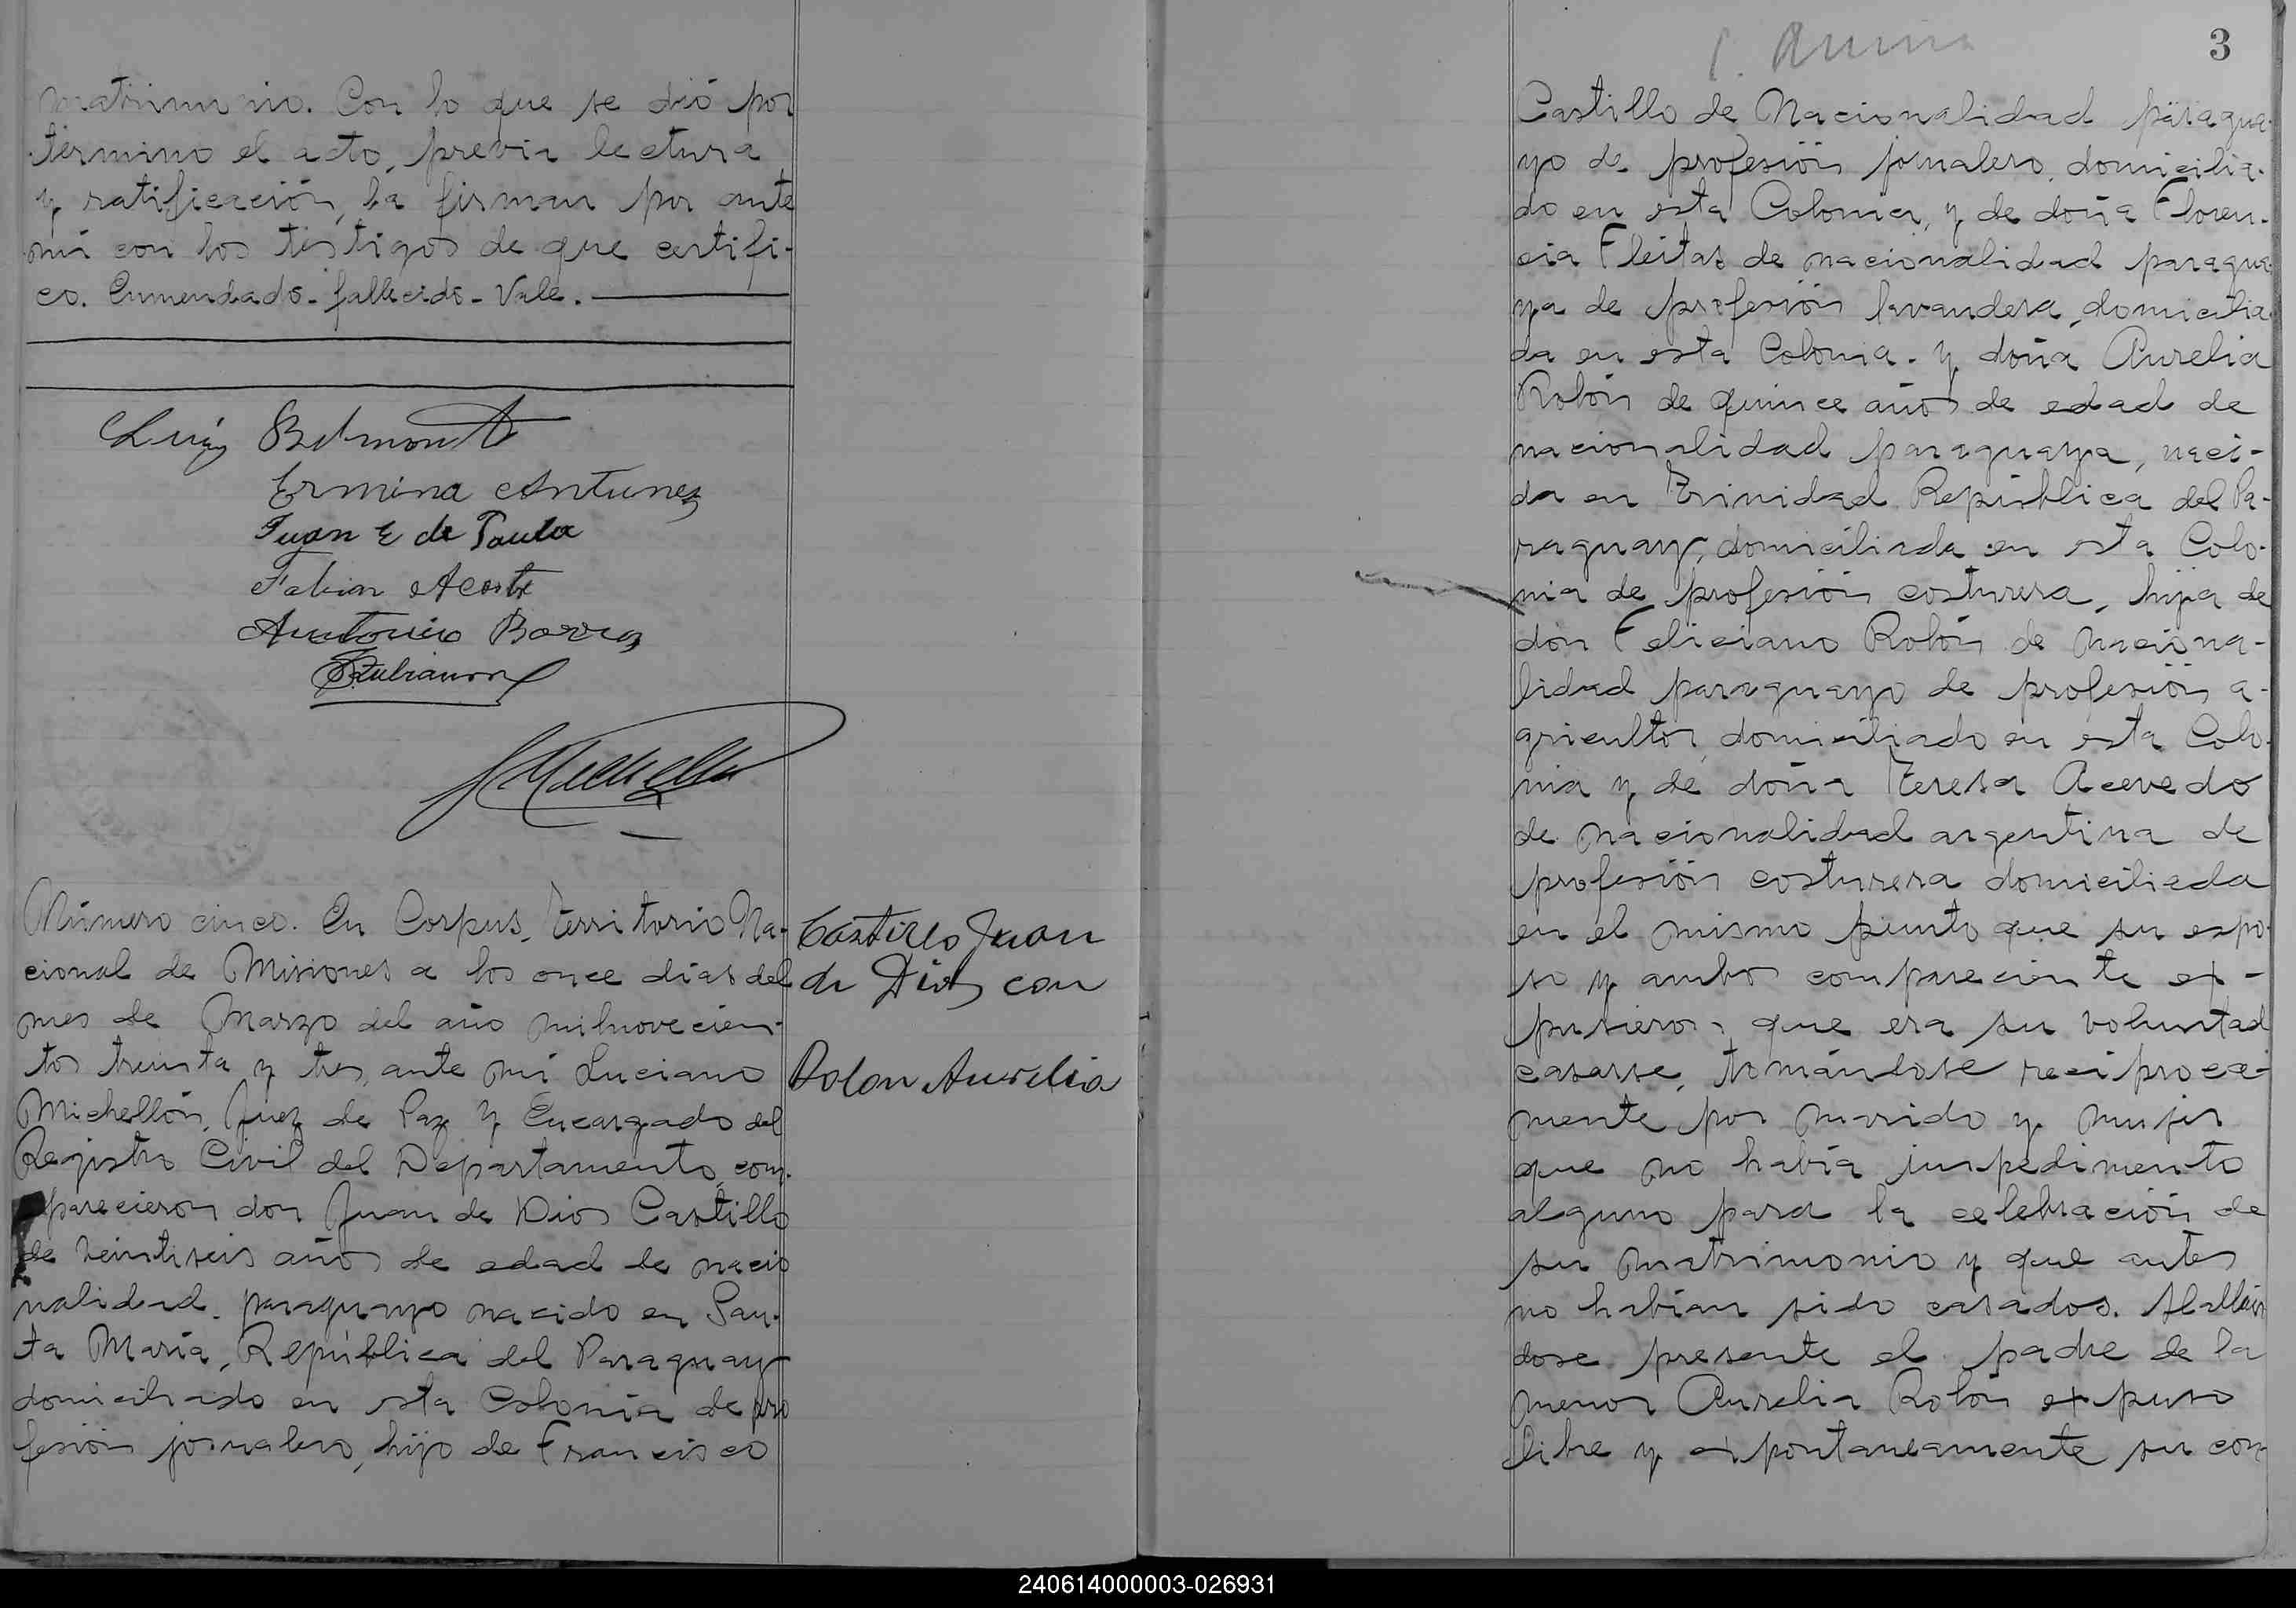 matrimonio. Con lo que se dió por
término el acto, previa lectura
y ratificación, la firman por ante
mi con los testigos de que certifi-
co. Enmendado - fallecido - Vale.
Luis Belmonte
Ermina Antunez
Juan E de Paula
Fabian Acosta
Antonio Borra
Número cinco. En Corpus, Territorio Na-
cional de Misiones a los once dias del
mes de Marzo del año milnovecien-
tos treinta y tres, ante mi Luciano
Michellón, Juez de Paz y Encargado del
Registro Civil del Departamento, com-
parecieron don Juan de Dios Castillo
de veintiseis años de edad de nacio
nalidad paraguayo nacido en San-
ta María, República del Paraguay
domiciliado en esta Colonia de pro
fesión jornalero, hijo de Francisco
Castillo Juan
de Dios con
Rolon Aurelia
3
Castillo de Nacionalidad paragua-
yo de profesión jornalero, domicilia-
do en esta Colonia, y de doña Floren-
cia Fleitas de nacionalidad paragua-
ya de profesión lavandera, domicilia-
da en esta Colonia. y doña Aurelia
Rolón de quince años de edad de
nacionalidad paraguaya, naci-
da en Trinidad República del Pa-
raguay, domiciliada en esta Colo-
nia de profesión costurera, hija de
don Feliciano Rolón de naciona-
lidad paraguayo de profesión a-
gricultor, domiciliado en esta Colo-
nia y de doña Teresa Acevedo
de nacionalidad argentina de
profesión costurera domiciliada
en el mismo punto que su espo-
so y ambos compareciente ex-
pusieron que era su voluntad
casarse, tomándose recíproca-
mente por marido y mujer
que no había impedimento
alguno para la celebración de
su matrimonio y que antes
no habían sido casados. Hallán
dose presente el padre de la
menor Aurelia Rolón expuso
libre y expontaneamente su con-
240614000003-026931